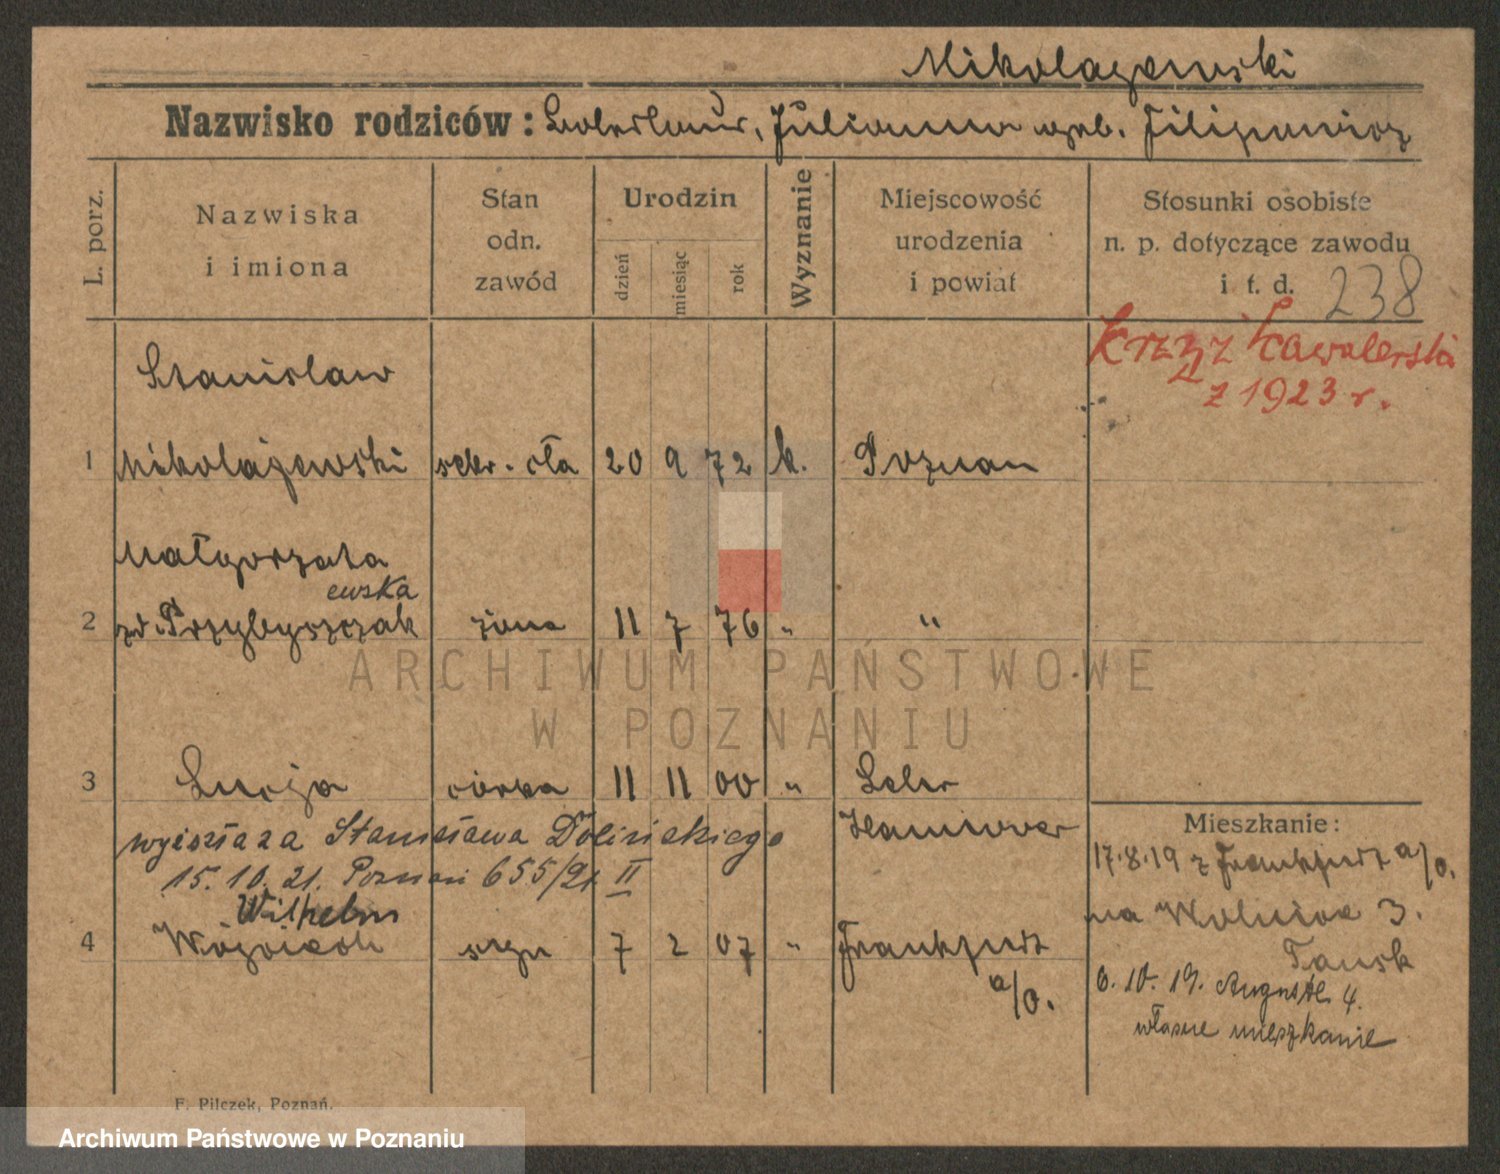 Mikolajewski
Nazwisko rodziców: Julianna Filipowicz
L. porz.
Nazwiska i imiona
Stan odn. zawód
Urodzin
dzień
miesiąc
rok
Wyznanie
Miejscowość urodzenia i powiat
Stosunki osobiste n. p. dotyczące zawodu i t. d.
238
Krzyż Kawalerski
z 1923 r.
Stanislaw
1 Mikolajewski sekr. cła 20 9 72 k. Poznan
Małgorzata
ewska
2 zd. Przybyszczak żona 11 7 76 " "
3 Lucja córka 11 11 00 " Leer
Hannover
wyszła za Stanisława Dolińskiego
15. 10. 21. Poznań 655/21 II
Wilhelm
4 Wojciech syn 7 2 07 " Frankfurt
a/O.
Mieszkanie:
17.8.19 z Frankfurt a/O.
na 3.
6. 10. 19. 4.
własne mieszkanie
F. Pilczek, Poznań.
ARCHIWUM PAŃSTWOWE
W POZNANIU
Archiwum Państwowe w Poznaniu